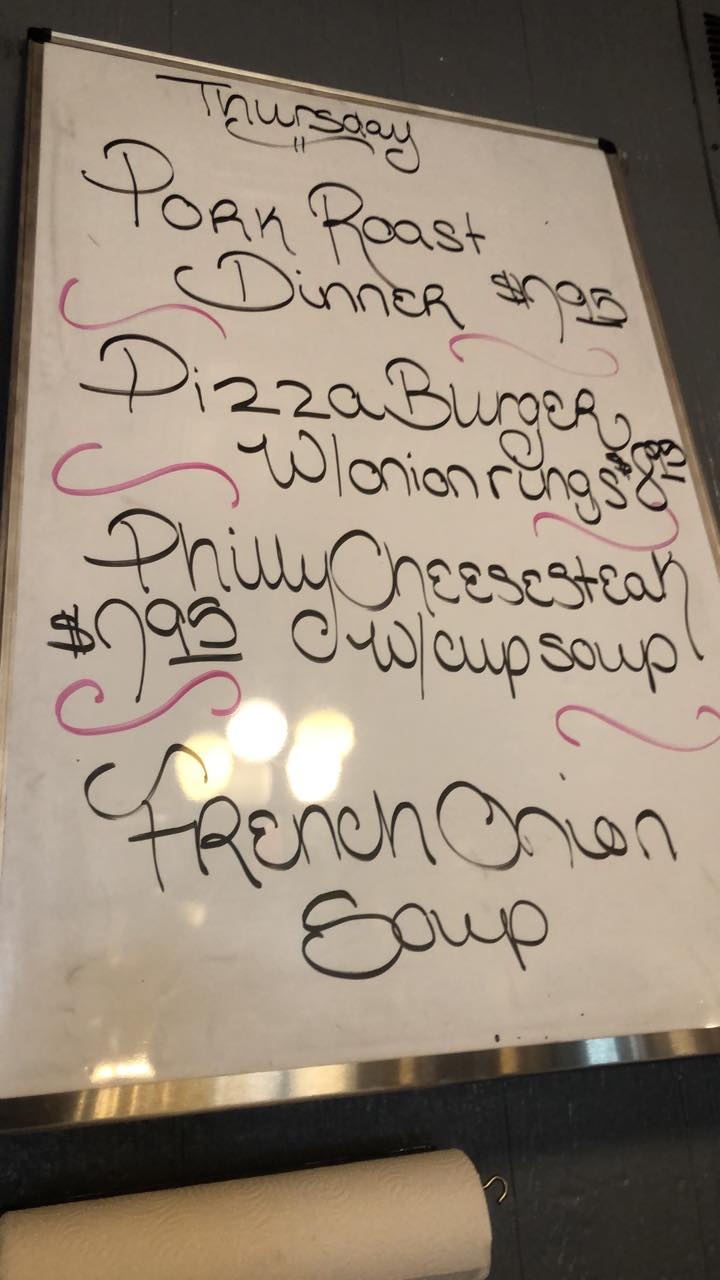 Thursday
Pork Roast
Dinner $7.95
Pizza Burger
w/onion rings $8.95
Philly Cheesesteak
$7.95 w/cup soup
French Onion
Soup